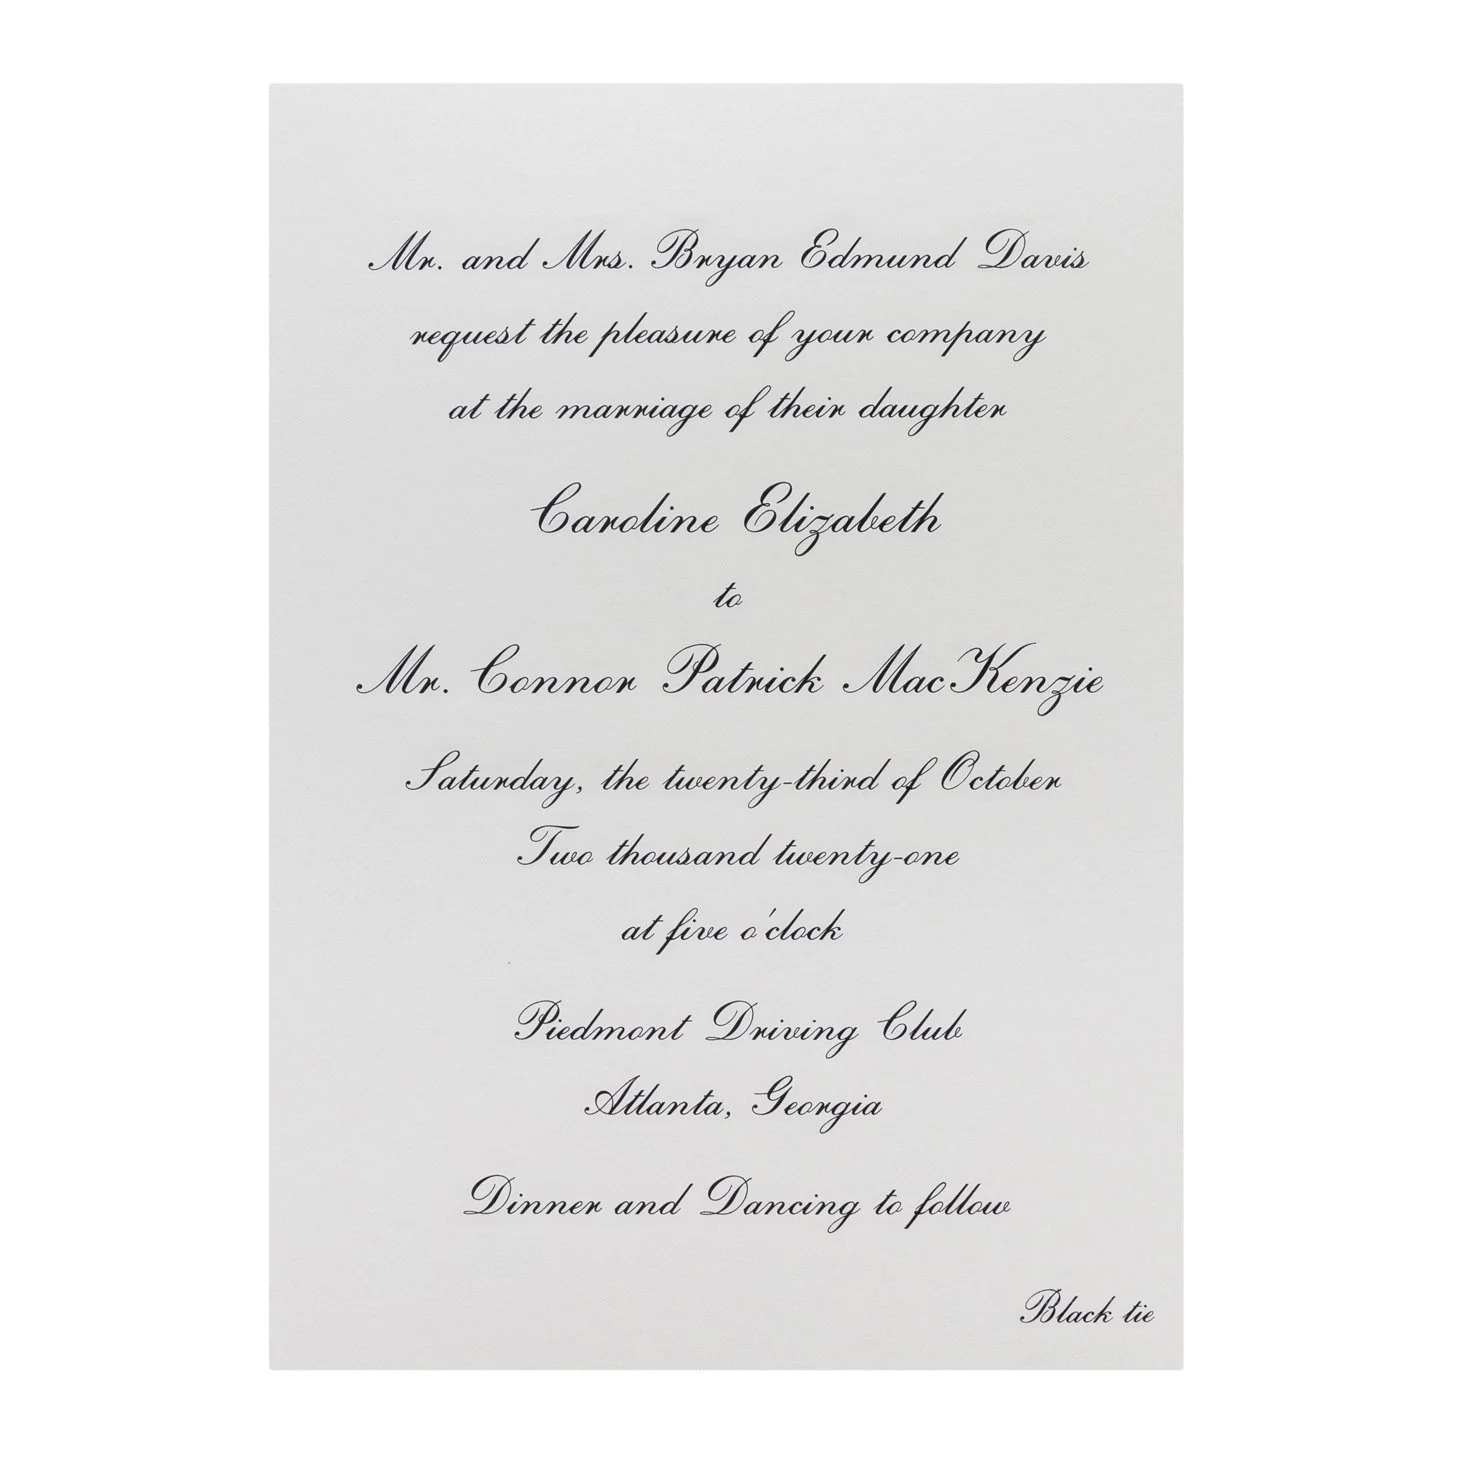 Mr. and Mrs. Bryan Edmund Davis
request the pleasure of your company
at the marriage of their daughter
Caroline Elizabeth
to
Mr. Connor Patrick MacKenzie
Saturday, the twenty-third of October
Two thousand twenty-one
at five o'clock
Piedmont Driving Club
Atlanta, Georgia
Dinner and Dancing to follow
Black tie